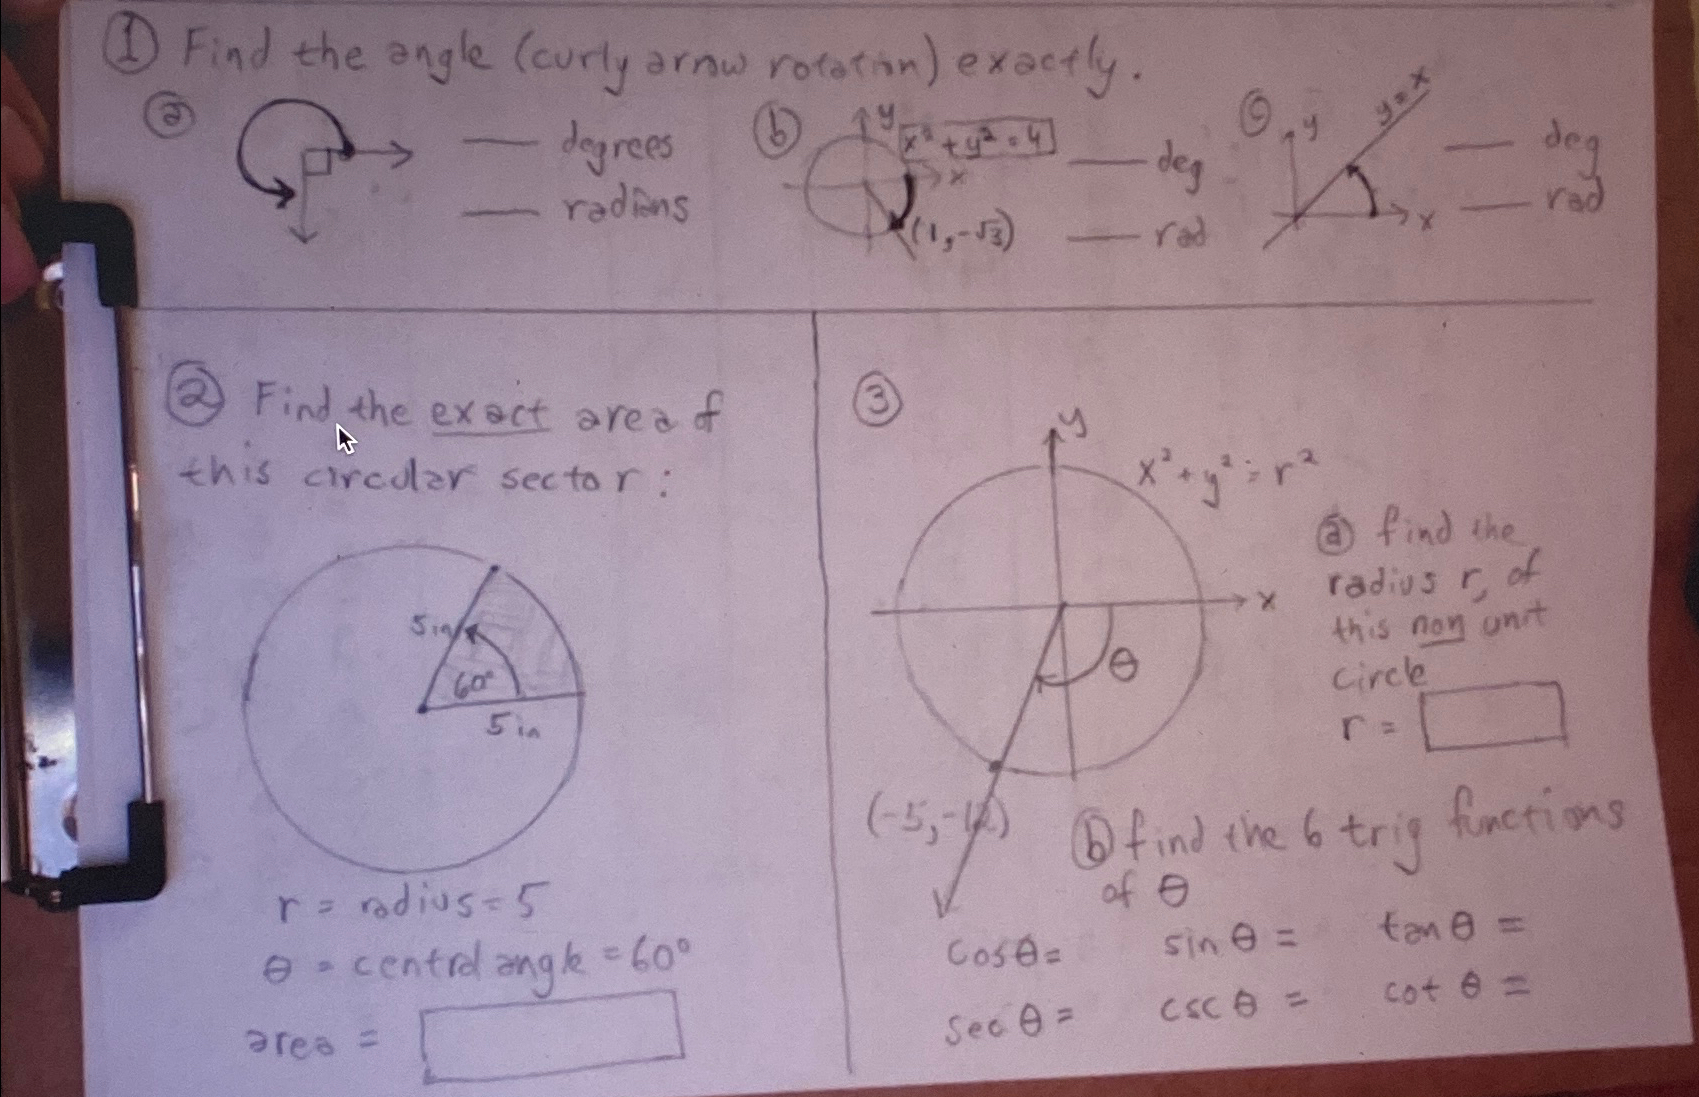 ① Find the angle (curly arrow rotation) exactly.
ⓐ
___ degrees
___ radians
ⓑ
y
x² + y² = 4
x
(1, -√3)
___ deg
___ rad
ⓒ
y
y = x
x
___ deg
___ rad
② Find the exact area of
this circular sector :
5 in
60°
5 in
r = radius = 5
θ = central angle = 60°
area =
③
y
x² + y² = r²
x
θ
(-5, -12)
ⓐ find the
radius r, of
this non unit
circle
r =
ⓑ find the 6 trig functions
of θ
cos θ = sin θ = tan θ =
sec θ = csc θ = cot θ =